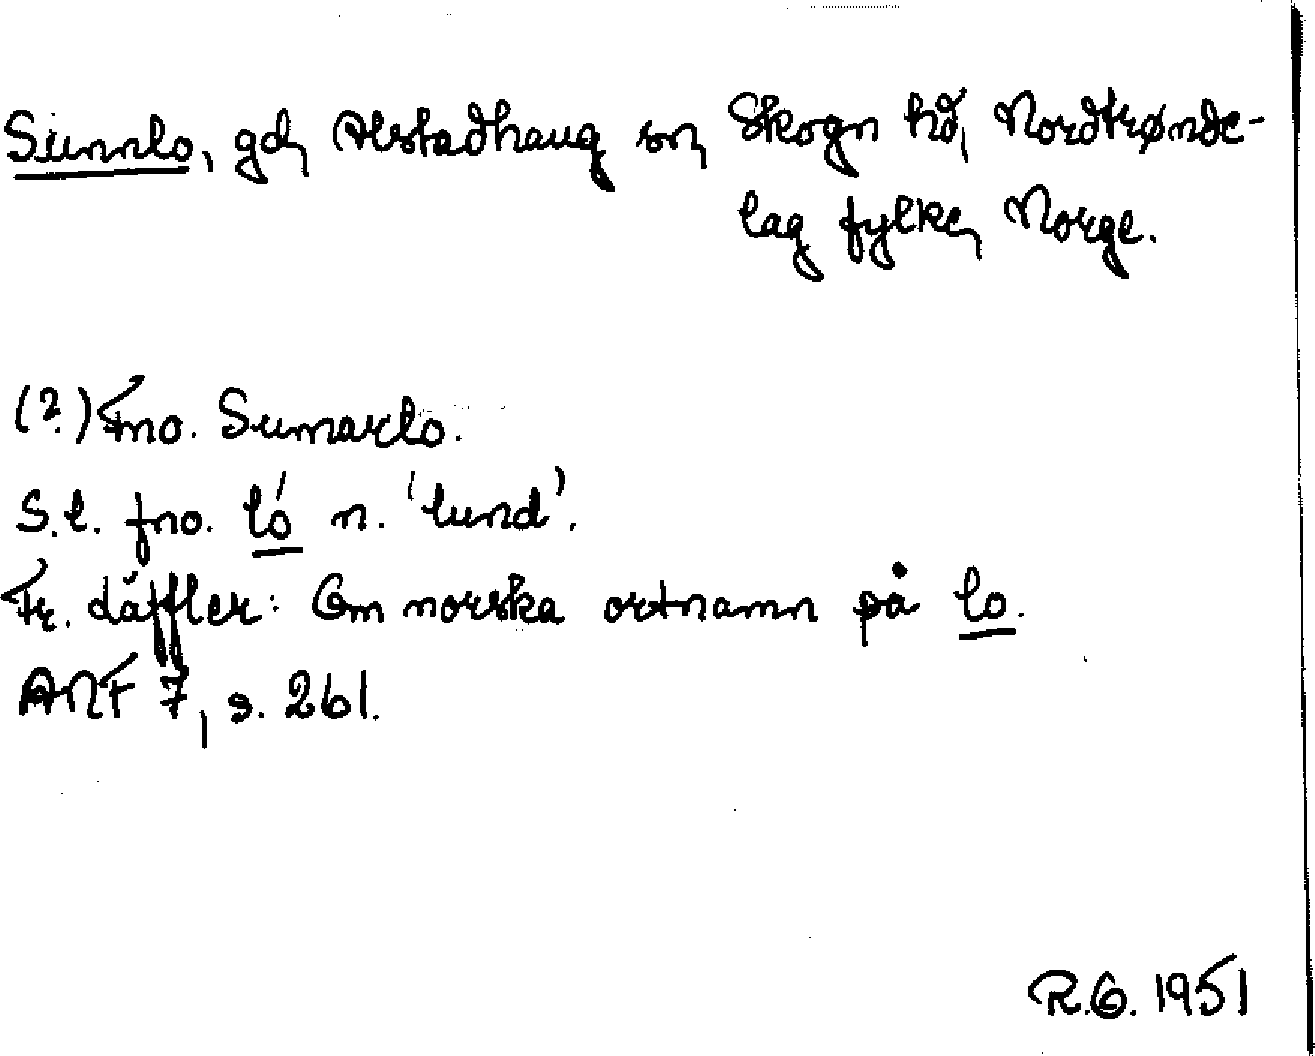 Sunnlo, gd, Alstadhaug sn, Skogn hd, Nordtrønde-
lag fylke, Norge.
(?) Fno. Sumarló.
S.l. fno. ló n. 'lund'.
Fr. Läffler: Om norska ortnamn på lo.
ANF 7, s. 261.
R.G. 1951